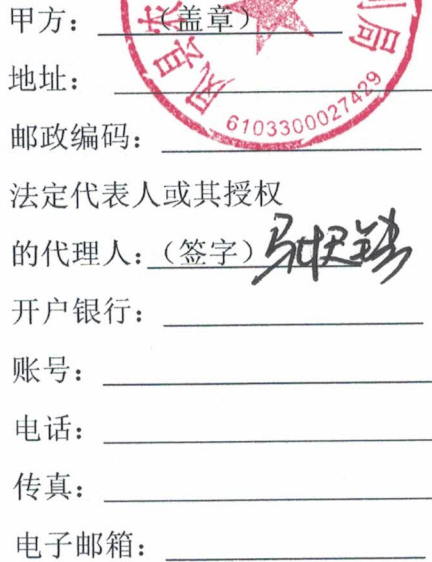 甲方：（盖章）
凤县农 利局
6103300027429
地址：
邮政编码：
法定代表人或其授权
的代理人：（签字）
开户银行：
账号：
电话：
传真：
电子邮箱：